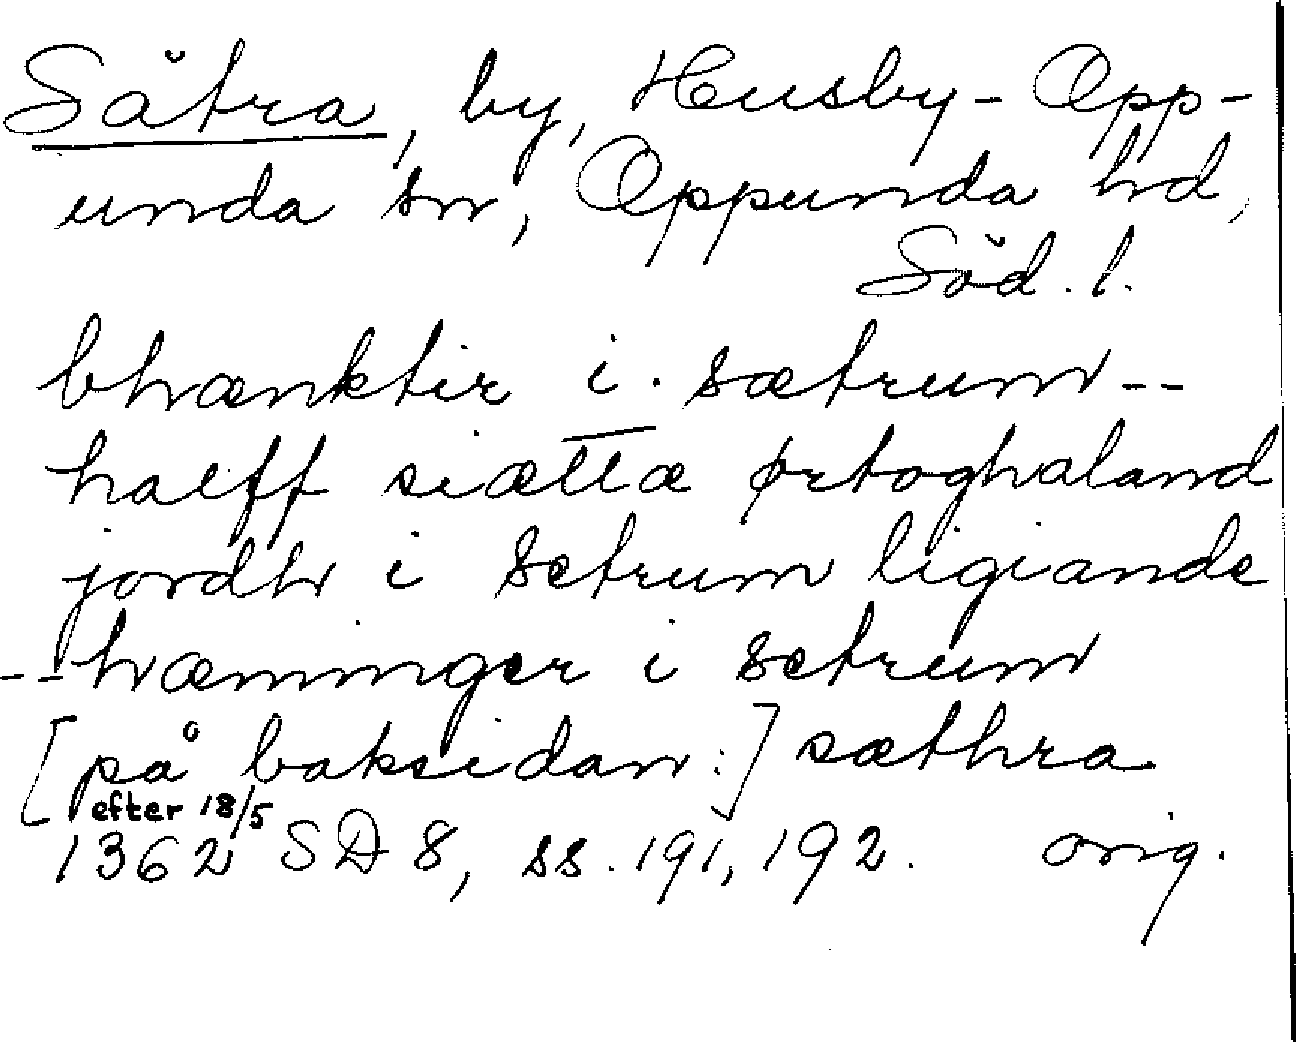 Sätra, by, Husby-Opp-
unda sn, Oppunda hd,
Söd. l.
bhænktir i. sætrum--
halff siætta ørtoghaland
jordh i setrum ligiande
--hæminger i setrum
[på baksidan:] sæthra
efter 18/5
1362 SD 8, ss. 191, 192. orig.